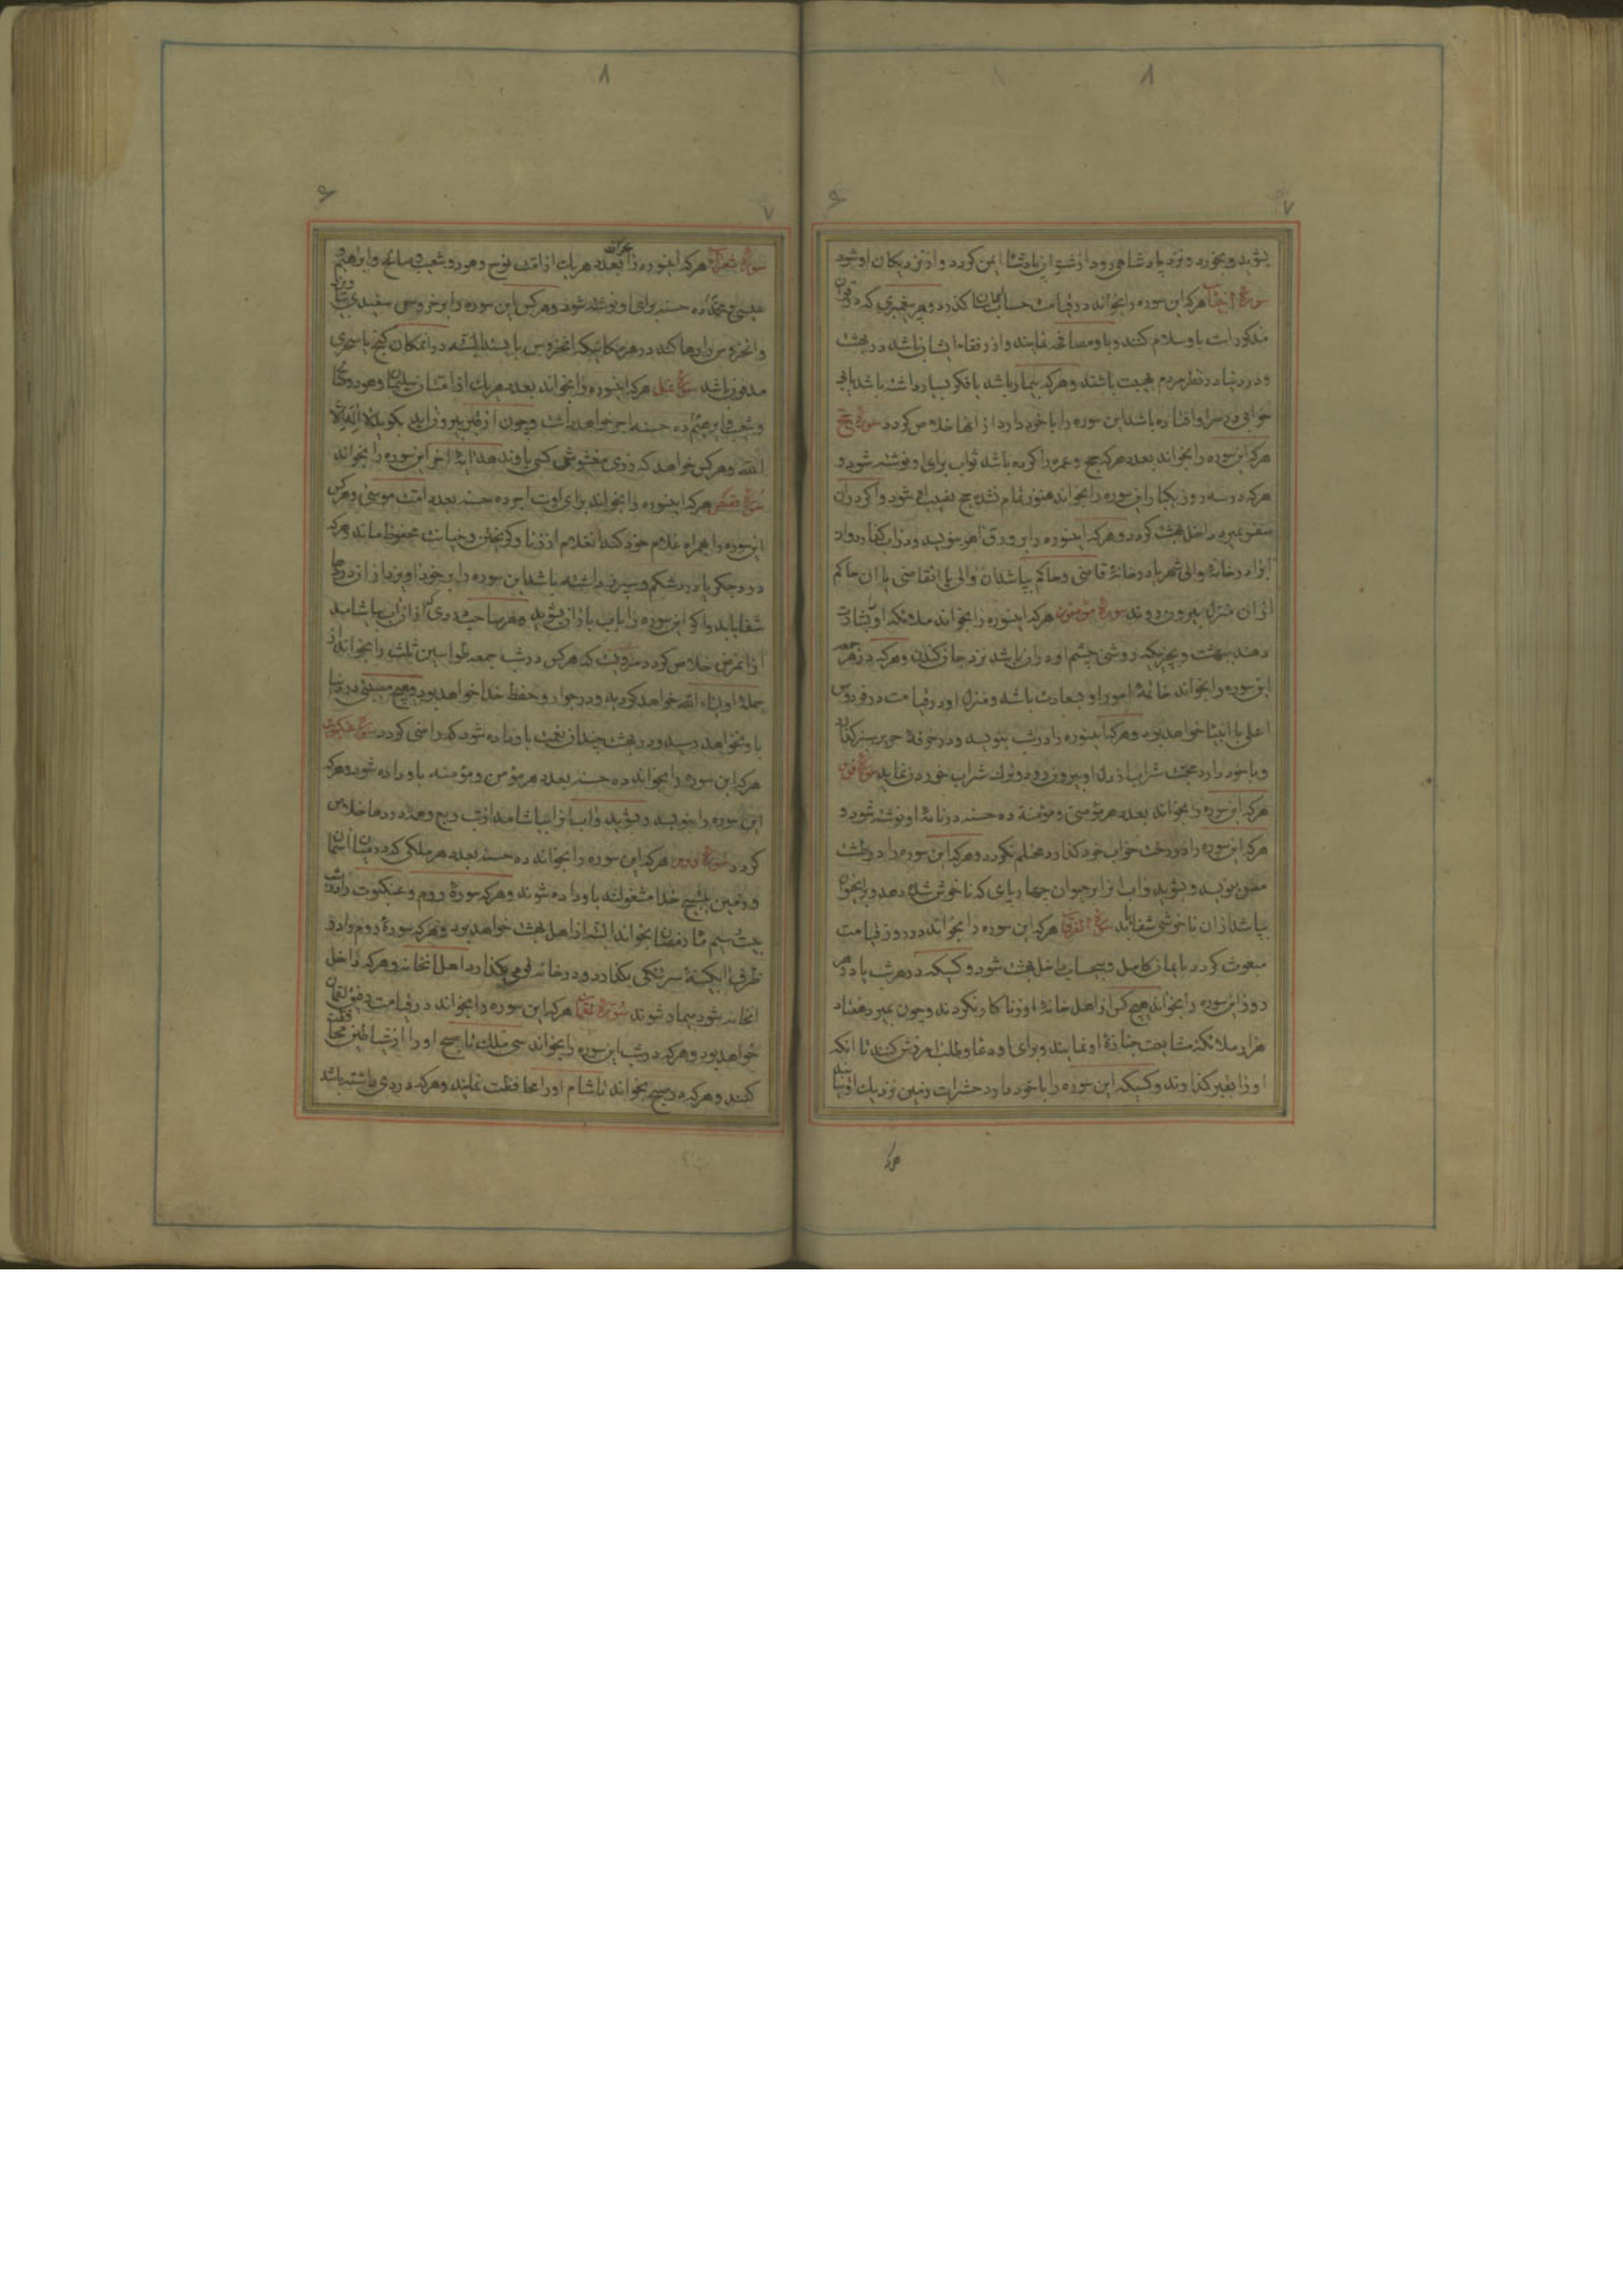 ۸
۷
بشوید و بخورد و نزد پادشاهی رود از شر آن پادشاه ایمن کردد و از نزدیکان او شود
سورهٔ انبیا هرکه این سوره را بخواند در قیامت حساب آسان کذرد و هر پیغمبری که در قرآن
مذکور است باو سلام کنند و باو مصافحه نمایند و از رفقاء ایشان باشد در بهشت
و در دنیا در نظر مردم بهیبت باشد و هرکه بیمار باشد یا فکر بسیار داشته باشد یا بی
خوابی در سر او افتاده باشد این سوره را با خود دارد از انها خلاص کردد سورهٔ حج
هرکه این سوره را بخواند بعدد هرکه حج و عمره را کرده باشد ثواب برای او نوشته شود و
هرکه در سه روز یکبار این سوره را بخواند هنوز تمام نشده حج نصیب او شود و اکر در ان
سفر بمیرد داخل بهشت کردد و هرکه اینسوره را بر ورق اهو بنویسد و در اب کذارد و اد
انرا در خانهٔ والی شهر یا در خانهٔ قاضی و حاکم بپاشد ان والی یا انقاضی یا ان حاکم
از ان منزل بیرون روند سورهٔ مؤمنون هرکه اینسوره را بخواند ملائکه او را بشارت
دهند ببهشت و بچیزیکه روشنی چشم او در ان باشد نزد جان کندن و هرکه در هر جمعه
این سوره را بخواند خاتمهٔ امور او بسعادت باشد و منزل او در قیامت در فردوس
اعلی با انبیا خواهد بود و هرکه اینسوره را در شب بنویسد و در خرقهٔ حریر سبز کذارد
و با خود دارد محبت شراب از دل او بیرون رود و ترک شراب خوردن نماید سورهٔ نور
هرکه این سوره را بخواند بعدد هر مؤمنی و مؤمنه ده حسنه در نامهٔ او نوشته شود و
هرکه این سوره را در رخت خواب خود کذارد محتلم نکردد و هرکه این سوره را در طشت
مس بنویسد و بشوید و اب انرا بر حیوان چهارپای که ناخوش شده دهد و بر انحیوان
بپاشد از ان ناخوشی شفا یابد سورهٔ الفرقان هرکه این سوره را بخواند در روز قیامت
مبعوث کردد با نماز کامل و بیحساب داخل بهشت شود و کسیکه در هر شب یا در هر
روز این سوره را بخواند هیچ کس از اهل خانهٔ او زنا کار نکردند و چون بمیرد هفتاد
هزار ملائکه مشایعت جنازهٔ او نمایند و برای او دعا و طلب امرزش کنند تا انکه
او را بقبر کذارند و کسیکه این سوره را با خود دارد حشرات زمین نزدیک او نیایند
هرکه
۸
۷
سورهٔ شعرا هرکه اینسوره را بخواند بعدد هر یک از امت نوح و هود و شعیب و صالح و ابراهیم و
عیسی و محمد ده حسنه برای او نوشته شود و هرکس این سوره را بر خروس سفیدی بندد
و انخروس را رها کند در هر مکانیکه انخروس بایستد البته در انمکان کنجی یا سحری
مدفون باشد سورهٔ نمل هرکه اینسوره را بخواند بعدد هر یک از امتان سلیمان و هود و صالح
و شعیب و ابرهیم ده حسنه اجر خواهد داشت و چون از قبر بیرون اید بکوید لا اله الا
الله و هرکس خواهد که دزدی مغشوشی کسی باو ندهد ایهٔ اخر این سوره را بخواند
سورهٔ قصص هرکه اینسوره را بخواند برای اوست اجر ده حسنه بعدد امت موسی و هرکس
این سوره را همراه غلام خود کند انغلام از زنا و کریختن و خیانت محفوظ ماند و هرکه
درد جکر یا درد شکم و سپرز داشته باشد این سوره را بر خود اویزد از ان دردها
شفا یابد و اکر این سوره را باب باران بشوید و هر صاحب دردی که از ان اب بیاشامد
از انمرض خلاص کردد مرویست که هرکس در شب جمعه طواسین ثلث را بخواند از
جملهٔ اولیاء الله خواهد کردید و در جوار و حفظ خدا خواهد بود و هیچ مصیبتی در دنیا
باو نخواهد رسید و در بهشت چندان نعمت باو داده شود که راضی کردد سورهٔ عنکبوت
هرکه این سوره را بخواند ده حسنه بعدد هر مؤمن و مؤمنه باو داده شود و هرکه
این سوره را بنویسد و بشوید و اب انرا بیاشامد از تب ربع و همهٔ دردها خلاص
کردد سورهٔ روم هرکه این سوره را بخواند ده حسنه بعدد هر ملکی که در میان اسمان
و زمین بتسبیح خدا مشغولند باو داده شوند و هرکه سورهٔ روم و عنکبوت را در شب
بیست سیم ماه رمضان بخواند البته از اهل بهشت خواهد بود و هرکه سورهٔ روم را در
ظرف ابکینهٔ سر تنکی بکذارد و در خانه قومی بکذارد اهل انخانه و هرکه داخل
انخانه شود بیمار شوند سورهٔ لقمان هرکه این سوره را بخواند در قیامت رفیق لقمان
خواهد بود و هرکه در شب این سوره را بخواند سی ملک تا صبح او را از شیاطین محافظت
کنند و هرکه در صبح بخواند تا شام او را محافظت نمایند و هرکه دردی داشته باشد